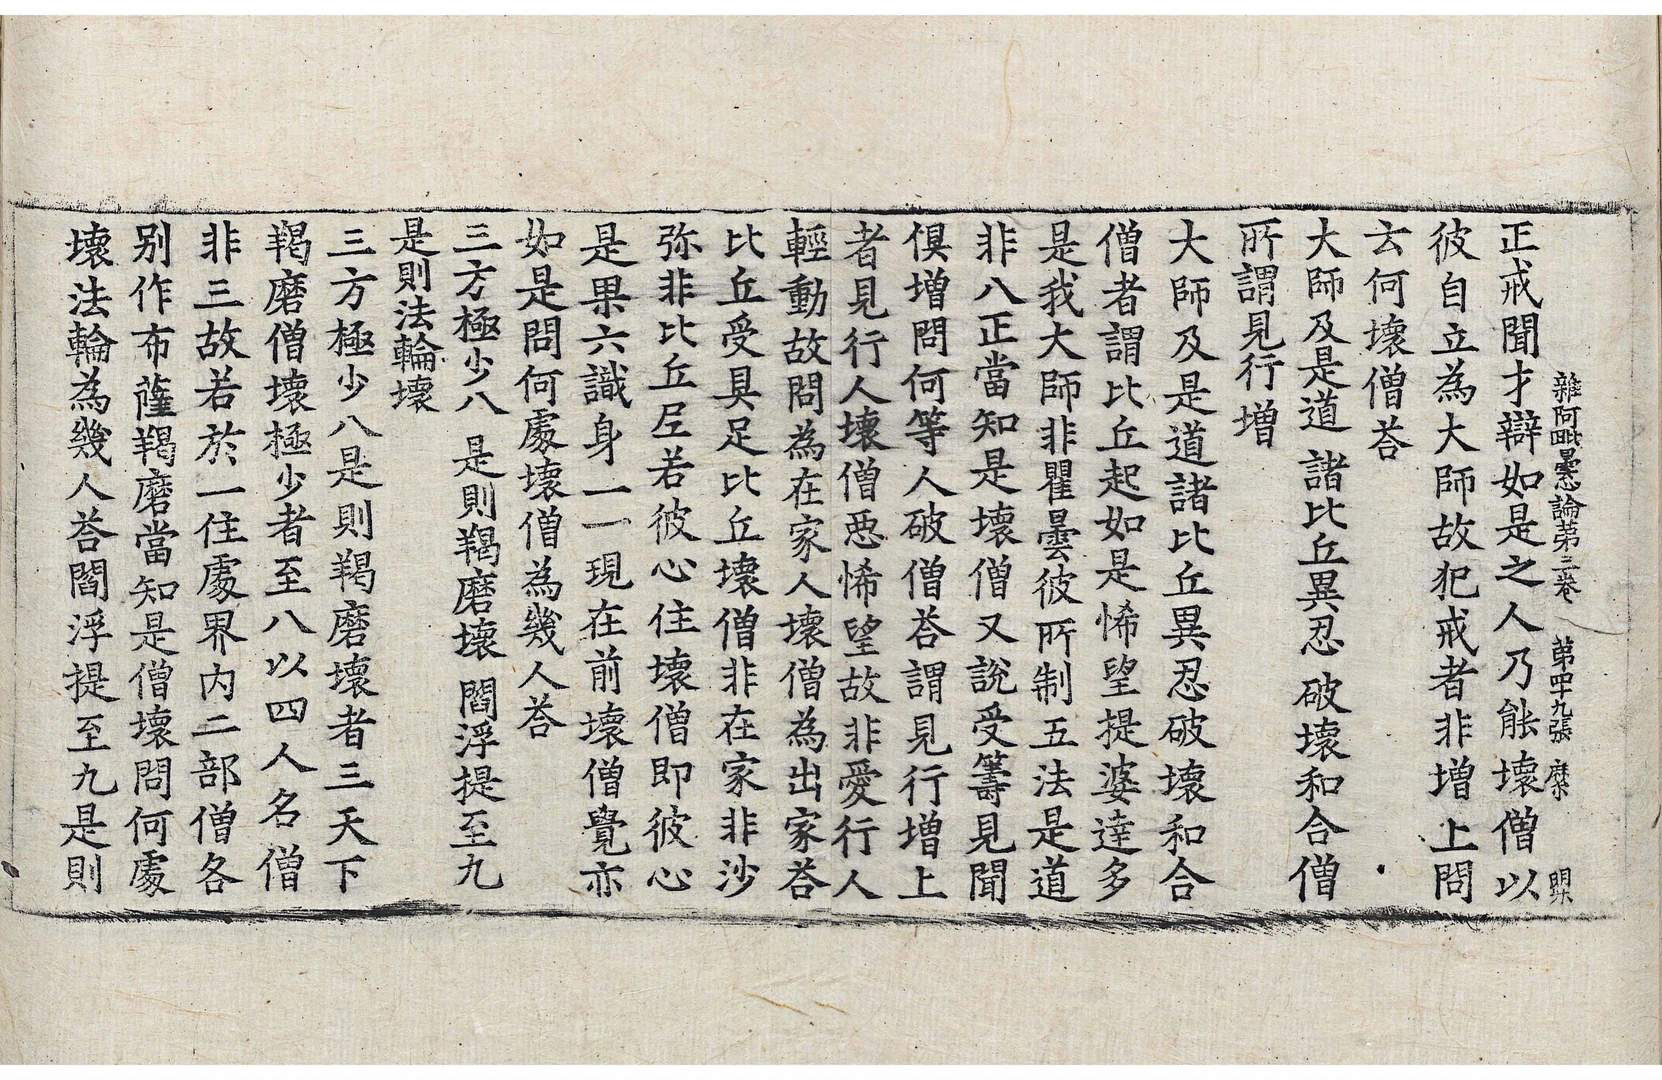 雜阿毗曇心論第三卷　第四十九張　縻　惧
正戒聞才辯如是之人乃能壞僧以
彼自立為大師故犯戒者非增上問
云何壞僧荅
大師及是道　諸比丘異忍　破壞和合僧
所謂見行增
大師及是道諸比丘異忍破壞和合
僧者謂比丘起如是悕望提婆達多
是我大師非瞿曇彼所制五法是道
非八正當知是壞僧又說受籌見聞
俱增問何等人破僧荅謂見行增上
者見行人壞僧惡悕望故非愛行人
輕動故問為在家人壞僧為出家荅
比丘受具足比丘壞僧非在家非沙
弥非比丘尼若彼心住壞僧即彼心
是果六識身一一現在前壞僧覺亦
如是問何處壞僧為幾人荅
三方極少八　是則羯磨壞　閻浮提至九
是則法輪壞
三方極少八是則羯磨壞者三天下
羯磨僧壞極少者至八以四人名僧
非三故若於一住處界內二部僧各
别作布薩羯磨當知是僧壞問何處
壞法輪為幾人荅閻浮提至九是則